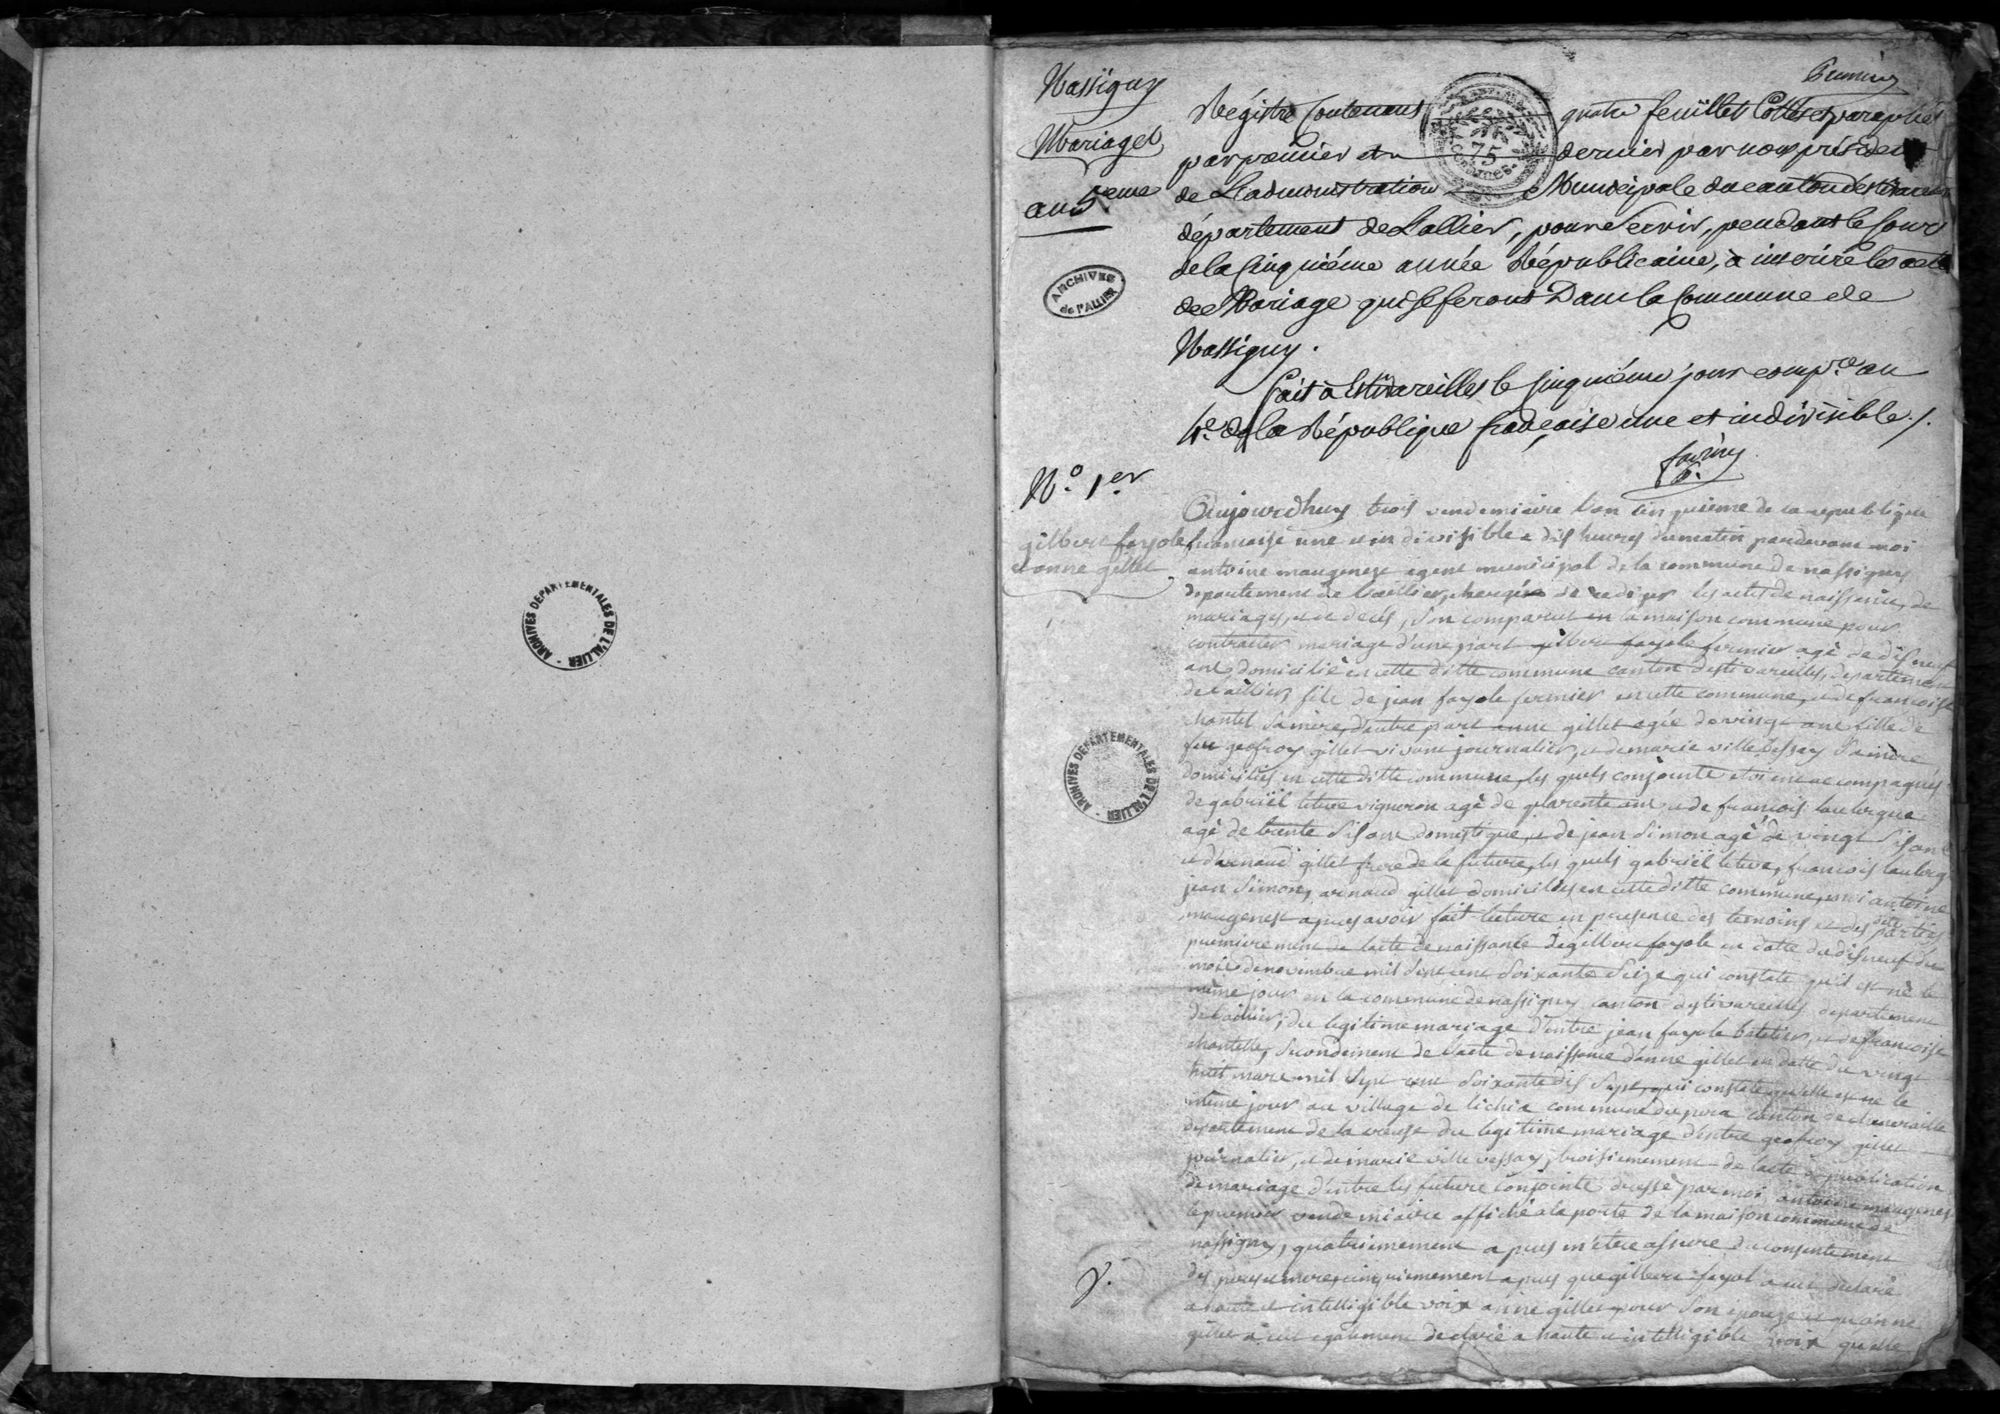 Premier
Nassigny
Mariages
an 5.eme
Régistre Contenant quatre feuillet Cottes et paraphés
par premier et dernier par nous président
de L'administration Municipale du canton d'Estivareilles
département de L'allier, pour Servir, pendant le Cours
de la Cinquième année Républicaine, à inscrire les actes
de Mariage qui se feront Dans la Commune de
Nassigny.
fait à Estivareilles le Cinquième jour comp.re an
4.e de la République française une et indivisible./.
75
CENTIMES
ARCHIVES
de l'ALLIER
N.o 1.er
gilbere fayole
et anne gillet
Aujourdhuy trois vendemiaire l'an cinquieme de la republique
francaise une et in divisible a dix heures du matin pardevant moi
antoine maugenest agent municipal de la commune de nassigny
departement de l'aillier, chergée de rediger les actes de naissence, de
mariages, et de deces, son comparut en la maison commune pour
contracter mariage d'une part gilbere fayole fermier agé de disneuf
ans domicilié en cette ditte commune canton destivareilles, departement
de l'aillier fils de jean fayole fermier en cette commune, et de francoise
chantel sa mère, d'autre part anne gillet agée de vingt ans fille de
feu geofroy gillet vivant journalier, et de marie ville vessay sa mère
domiciliés en cette ditte commune, les quels conjointe etoient accompagnés
de gabriël leture vigneron agé de quarente ans et de francois laubergue
agé de trente sis ans domestique, et de jean simon agé de vingt sis ans
et d'arnaud gillet frere de la future, les quels gabriël leture, francois lauberg
jean simon, arnaud gillet domiciliés en cette ditte commune, moi antoine
maugenest apres avoir fait lecture en presence des temoins et des dits parties
premierement de l'acte de naissance de gilbere fayole en datte du disneuf du
mois de novembre mil sept cent soixante seize qui constate qu'il est né le
même jour en la commune de nassigny canton destivareilles departement
de l'aillier, du legitime mariage d'entre jean fayole batelier, et de francoise
chantelle, secondement de l'acte de naissance d'anne gillet en datte du vingt
huit mars mil sept cent soixante dis sept, qui constate qu'elle est ne le
même jour au village de lichia commune du canton de
departement de la creuse du legitime mariage d'entre geofroy gillet
journalier, et de marie ville vessay, troisiemement de l'acte de publication
de mariage d'entre les future conjointe dressé par moi antoine maugenest
le premier vendemiaire affiché a la porte de la maison commune de
nassigny, quatriemement apres m'etre assure du consentement
des pere et mere, cinquiemement apres que gilbere fayol a eut declaré
a haute et intelligible voix anne gillet pour son epouze et qu'anne
gillet a eut egalement declaré a haute et intelligible voix quelle
ARCHIVES DEPARTEMENTALES DE L'ALLIER
ARCHIVES DEPARTEMENTALES DE L'ALLIER